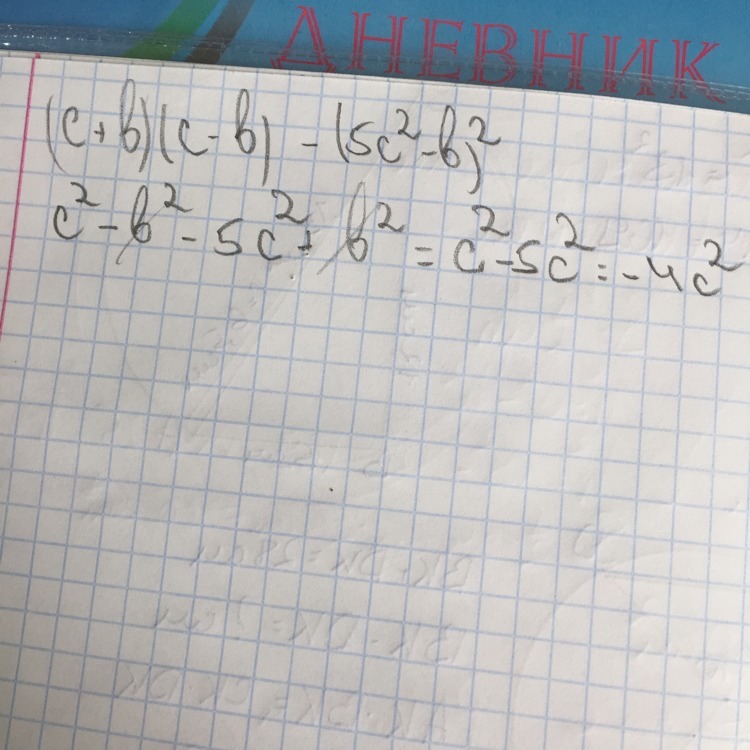 ДНЕВНИК
(c+b)(c-b) - (5c²-b)²
c² - b² - 5c² + b² = c² - 5c² = -4c²